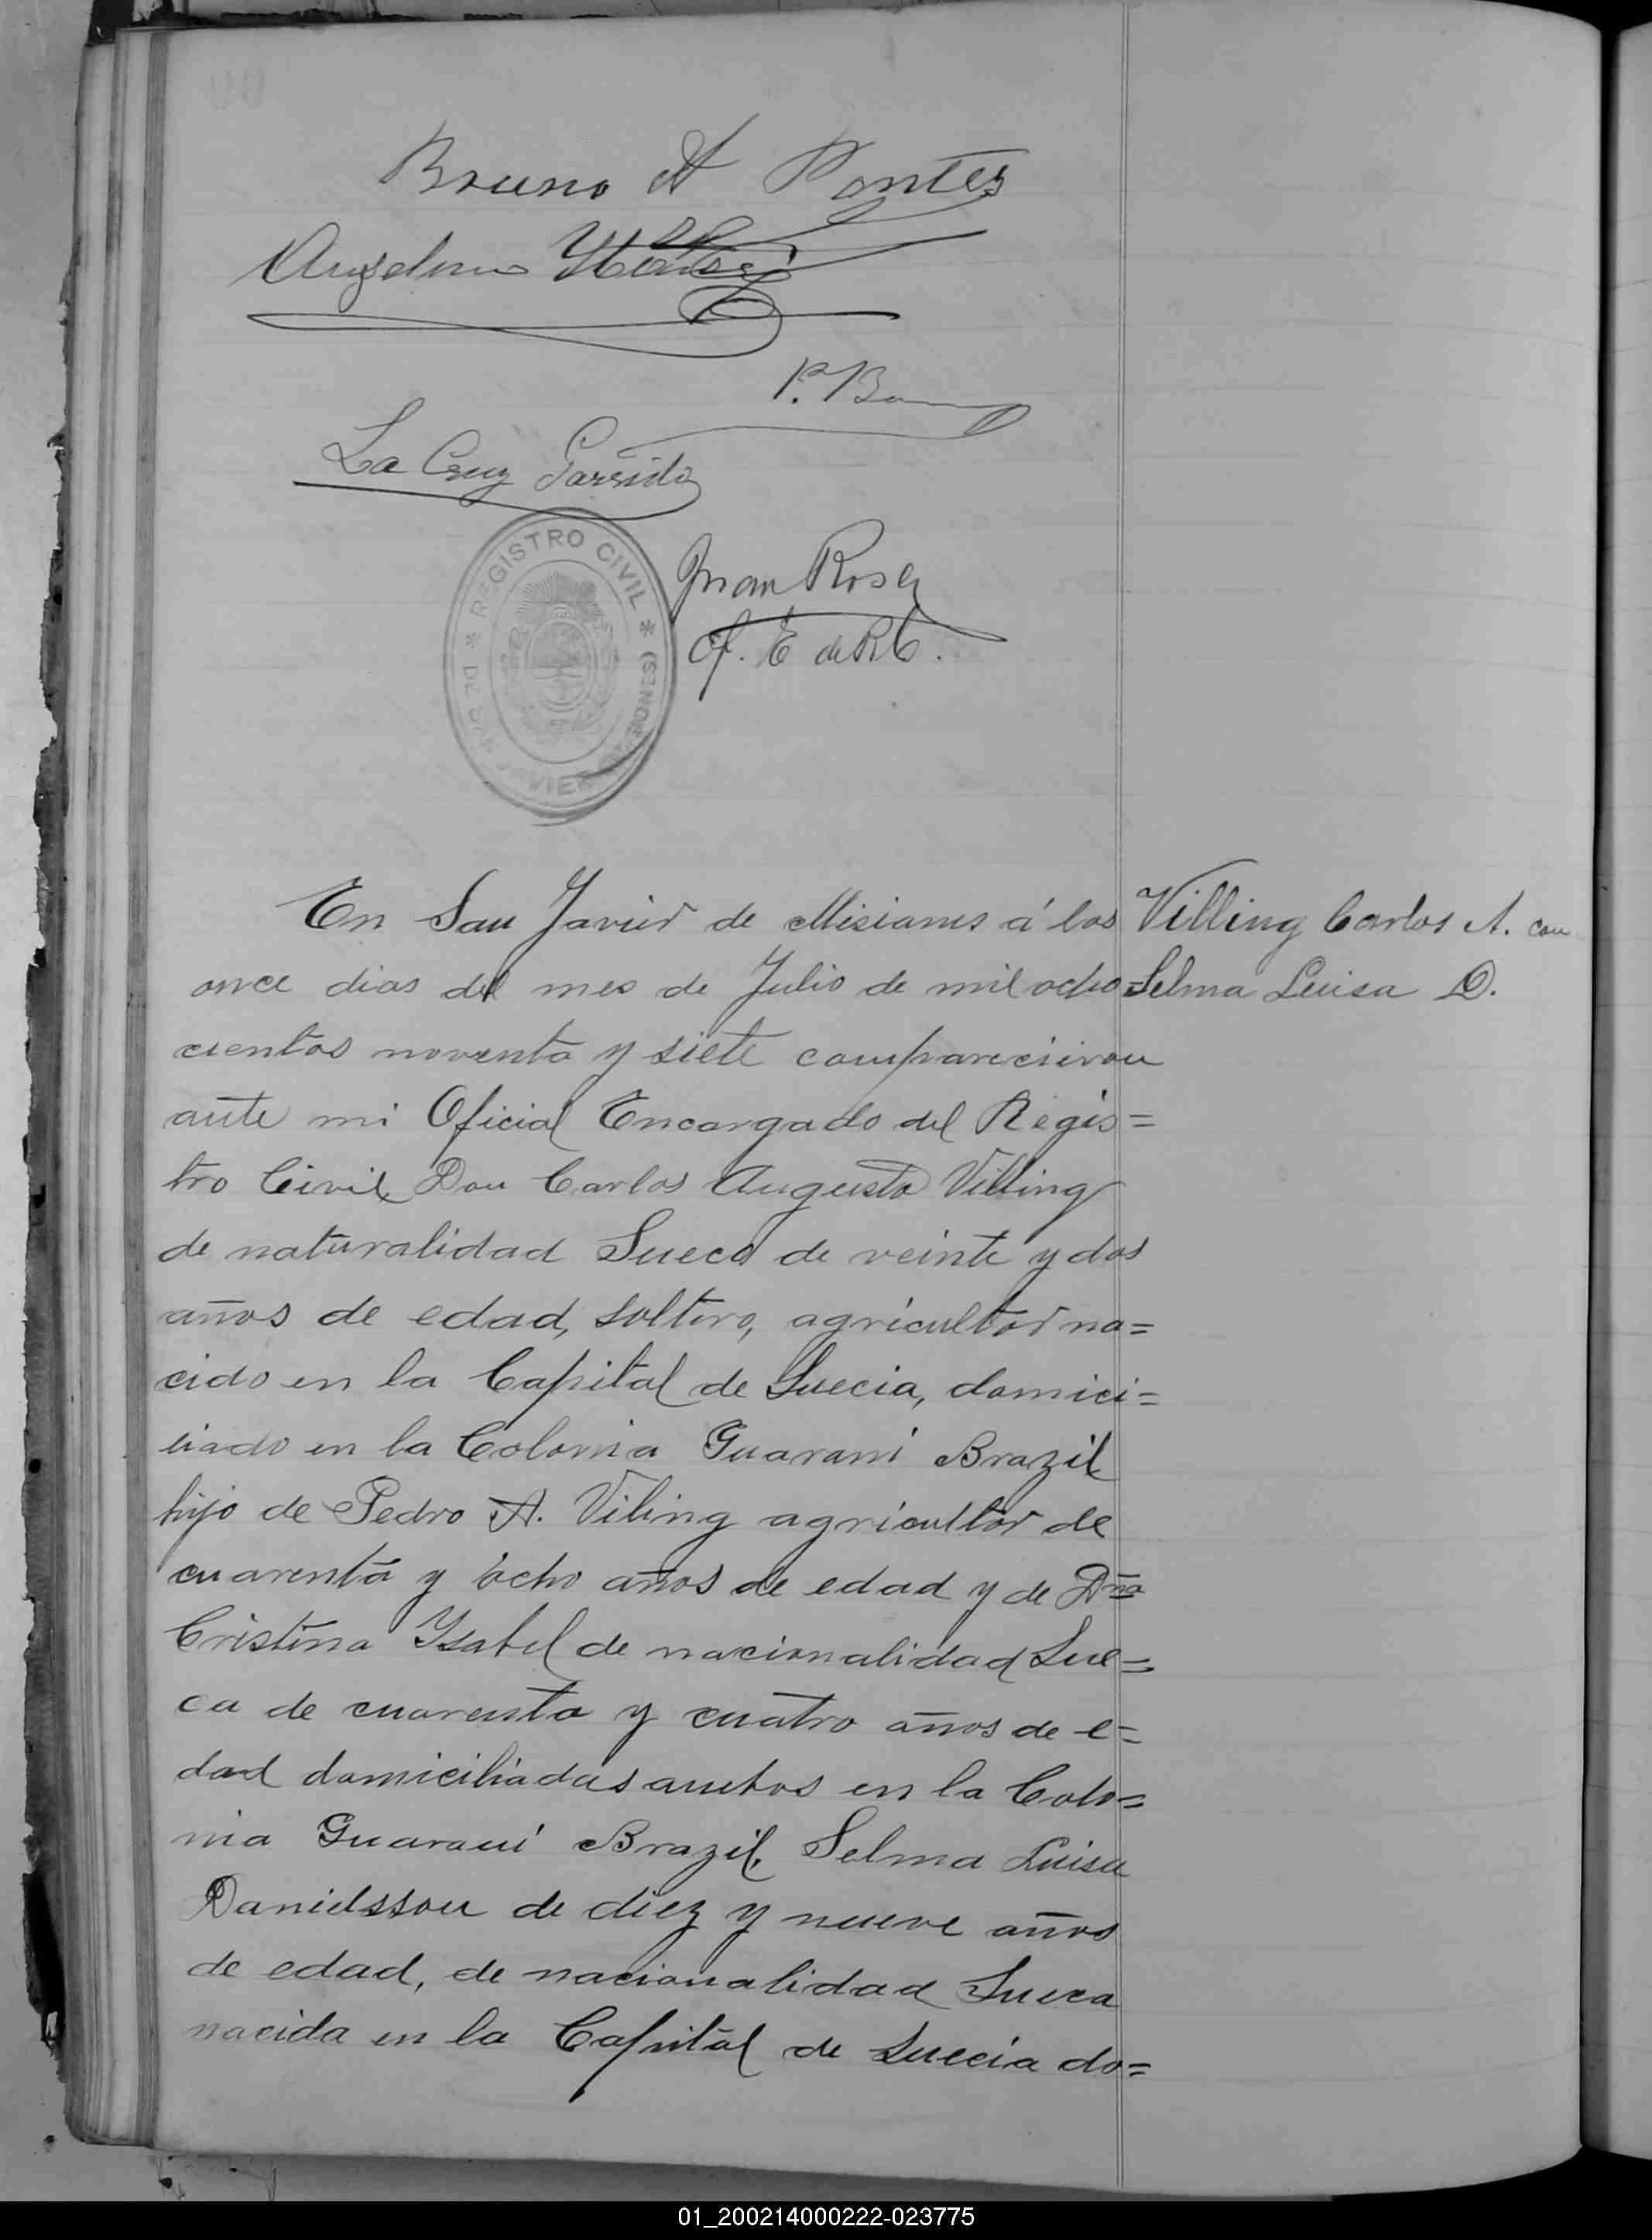 Bruno A Pontes
Anselmo
P. B
La Cruz Garrido
REGISTRO CIVIL * DE SAN JAVIER (MISIONES) *
Juan Rosa
Of. E del R C.
En San Javier de Misiones á los
once dias del mes de Julio de mil ocho=
cientos noventa y siete comparecieron
ante mi Oficial Encargado del Regis=
tro Civil Don Carlos Augusto Villing
de naturalidad Sueco de veinte y dos
años de edad, soltero, agricultor na=
cido en la Capital de Suecia, domici=
liado en la Colonia Guarani Brazil
hijo de Pedro A. Viling agricultor de
cuarenta y ocho años de edad y de Dña
Cristina Ysabel de nacionalidad Sue=
ca de cuarenta y cuatro años de e=
dad domiciliadas ambos en la Colo=
nia Guarani Brazil, Selma Luisa
Danielsson de diez y nueve años
de edad, de nacionalidad Sueca
nacida en la Capital de Suecia do=
Villing Carlos A. con
Selma Luisa D.
01_200214000222-023775